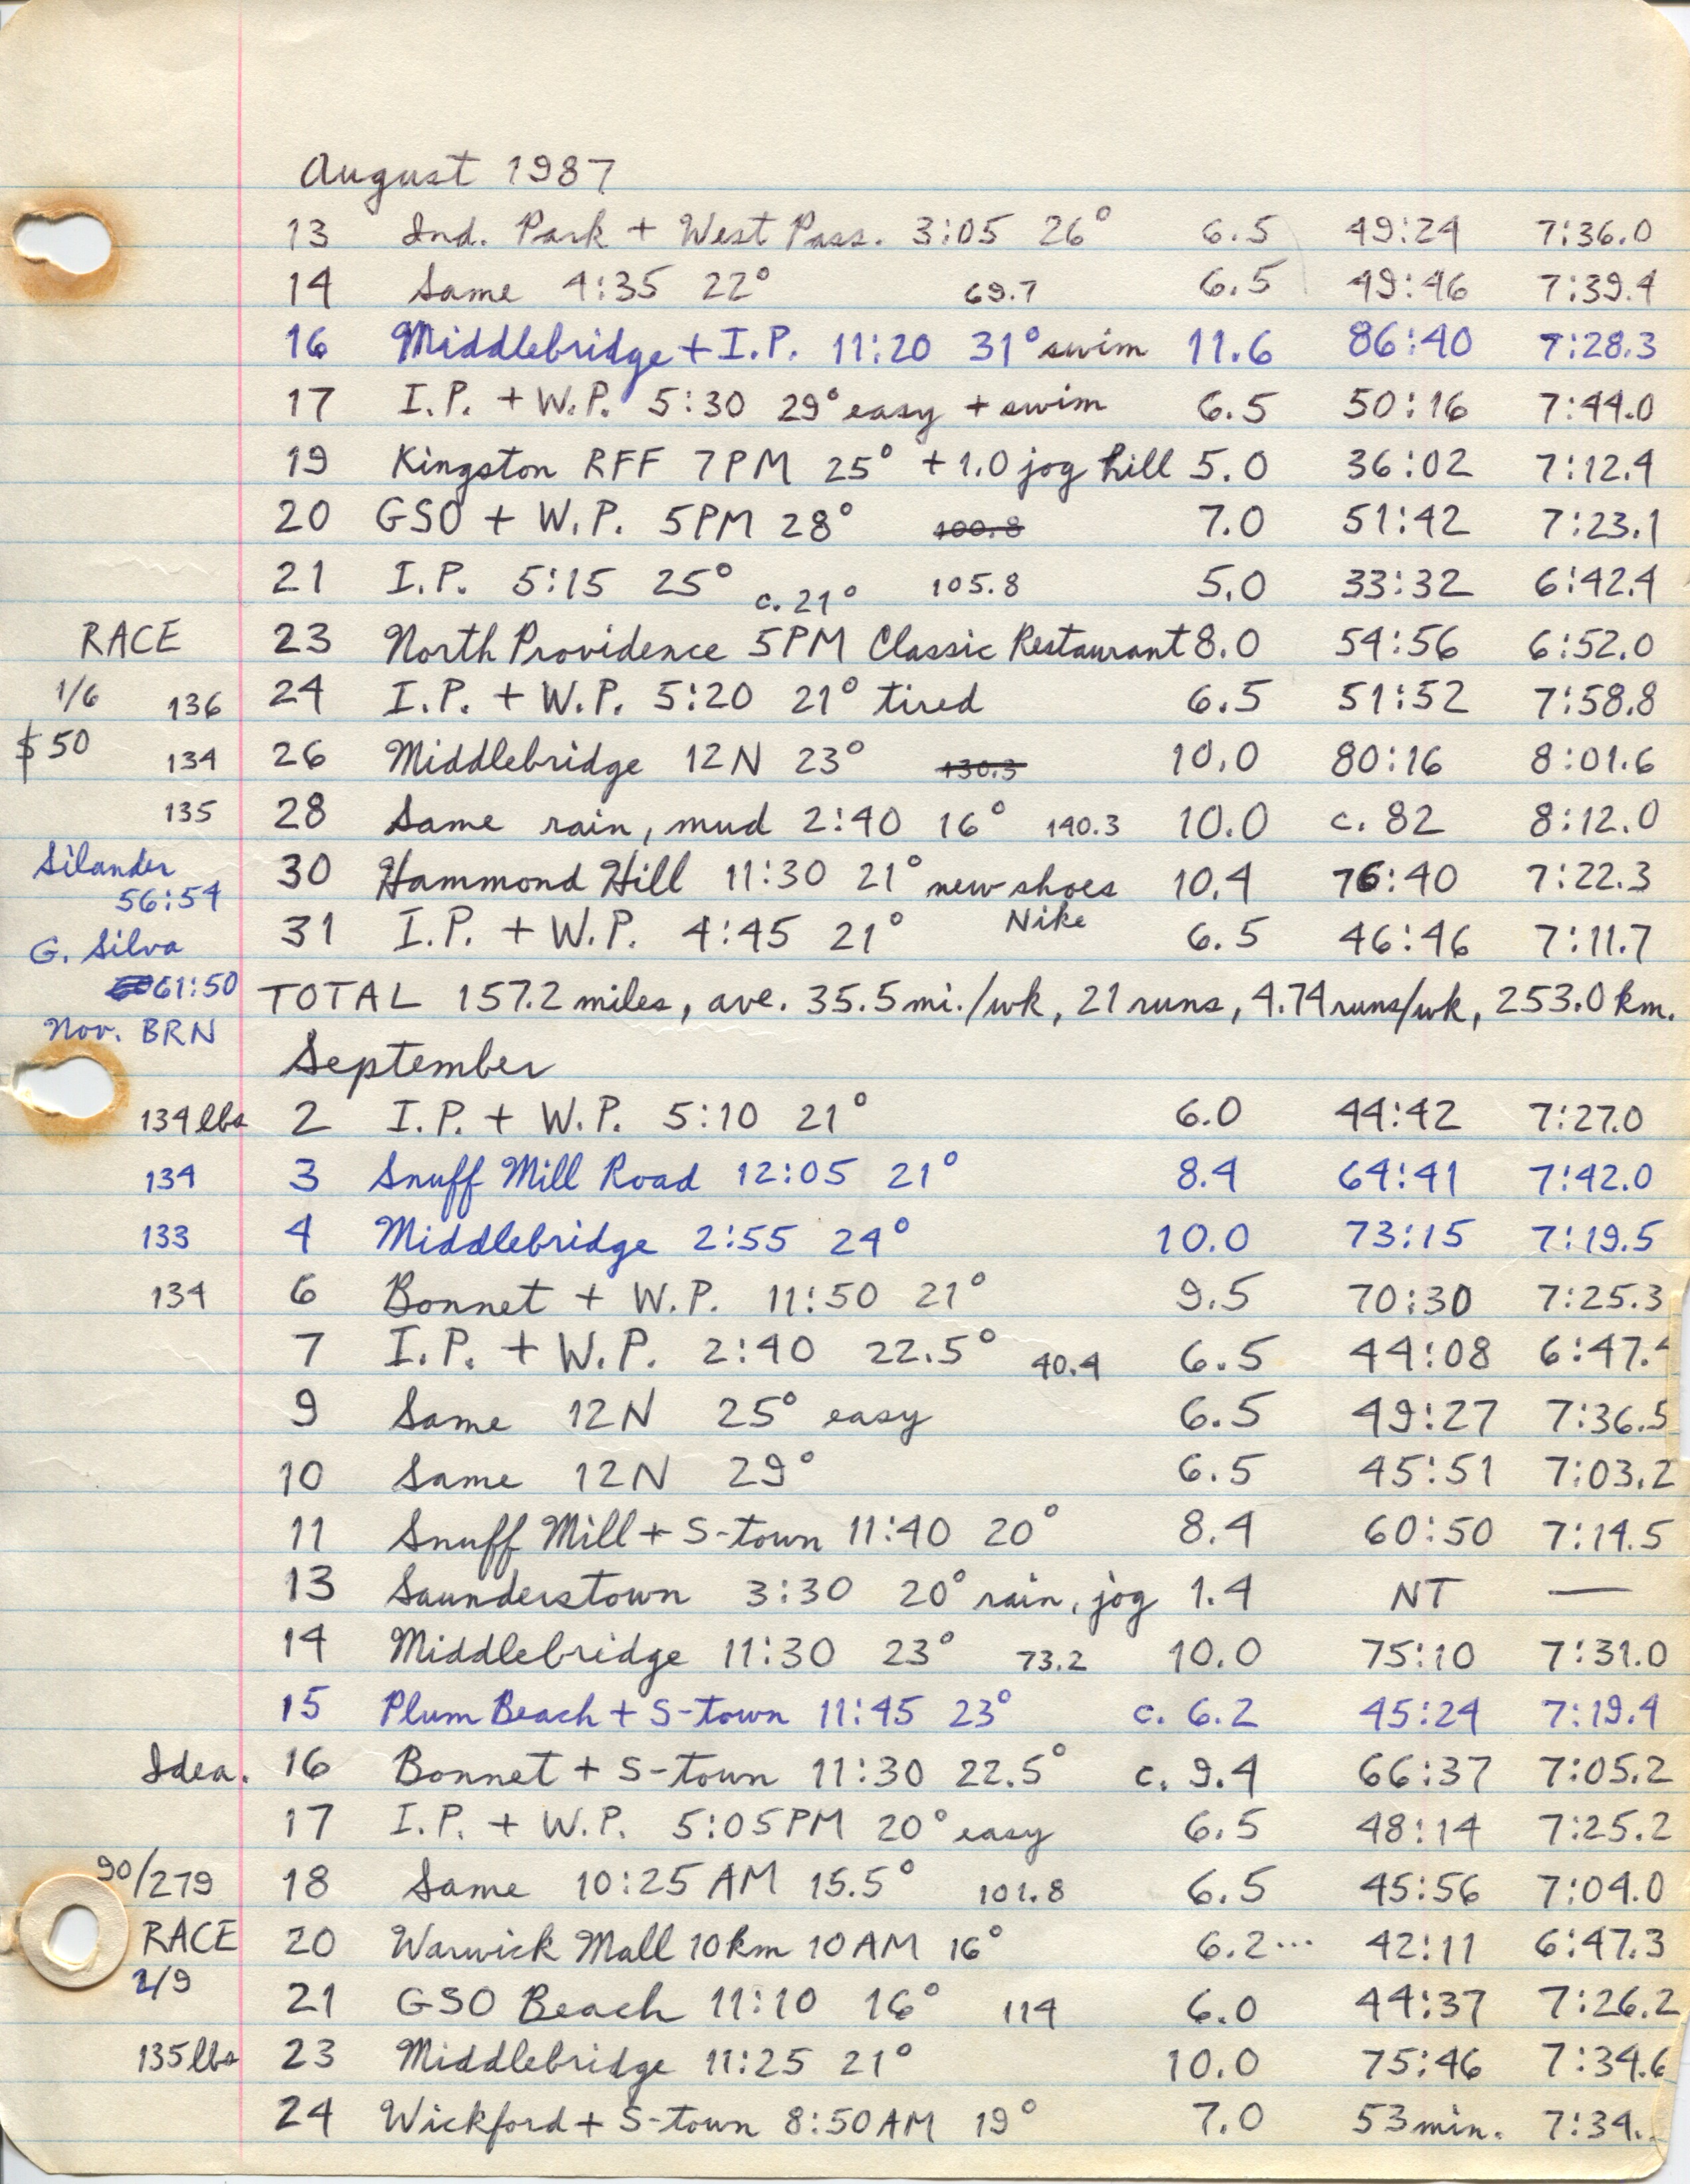 August 1987
13 Ind. Park + West Pass. 3:05 26° 6.5 49:24 7:36.0
14 Same 4:35 22° 69.7 6.5 49:46 7:39.4
16 Middlebridge + I.P. 11:20 31° swim 11.6 86:40 7:28.3
17 I.P. + W.P. 5:30 29° easy + swim 6.5 50:16 7:44.0
19 Kingston RFF 7PM 25° + 1.0 jog hill 5.0 36:02 7:12.4
20 GSO + W.P. 5PM 28° 100.8 7.0 51:42 7:23.1
21 I.P. 5:15 25° 105.8 5.0 33:32 6:42.4
c. 21°
RACE 23 North Providence 5PM Classic Restaurant 8.0 54:56 6:52.0
1/6 136 24 I.P. + W.P. 5:20 21° tired 6.5 51:52 7:58.8
$50 134 26 Middlebridge 12N 23° 130.3 10.0 80:16 8:01.6
135 28 Same rain, mud 2:40 16° 140.3 10.0 c. 82 8:12.0
Silander 30 Hammond Hill 11:30 21° new shoes 10.4 76:40 7:22.3
56:54
Nike
G. Silva 31 I.P. + W.P. 4:45 21° 6.5 46:46 7:11.7
61:50 TOTAL 157.2 miles, ave. 35.5 mi./wk, 21 runs, 4.74 runs/wk, 253.0 km.
Nov. BRN
September
134 lbs 2 I.P. + W.P. 5:10 21° 6.0 44:42 7:27.0
134 3 Snuff Mill Road 12:05 21° 8.4 64:41 7:42.0
133 4 Middlebridge 2:55 24° 10.0 73:15 7:19.5
134 6 Bonnet + W.P. 11:50 21° 9.5 70:30 7:25.3
7 I.P. + W.P. 2:40 22.5° 40.4 6.5 44:08 6:47.4
9 Same 12N 25° easy 6.5 49:27 7:36.5
10 Same 12N 29° 6.5 45:51 7:03.2
11 Snuff Mill + S-town 11:40 20° 8.4 60:50 7:14.5
13 Saunderstown 3:30 20° rain, jog 1.4 NT —
14 Middlebridge 11:30 23° 73.2 10.0 75:10 7:31.0
15 Plum Beach + S-town 11:45 23° c. 6.2 45:24 7:19.4
Idea. 16 Bonnet + S-town 11:30 22.5° c. 9.4 66:37 7:05.2
17 I.P. + W.P. 5:05PM 20° easy 6.5 48:14 7:25.2
90/279 18 Same 10:25 AM 15.5° 101.8 6.5 45:56 7:04.0
RACE 20 Warwick Mall 10km 10AM 16° 6.2... 42:11 6:47.3
2/9 21 GSO Beach 11:10 16° 114 6.0 44:37 7:26.2
135 lbs 23 Middlebridge 11:25 21° 10.0 75:46 7:34.6
24 Wickford + S-town 8:50 AM 19° 7.0 53 min. 7:34.